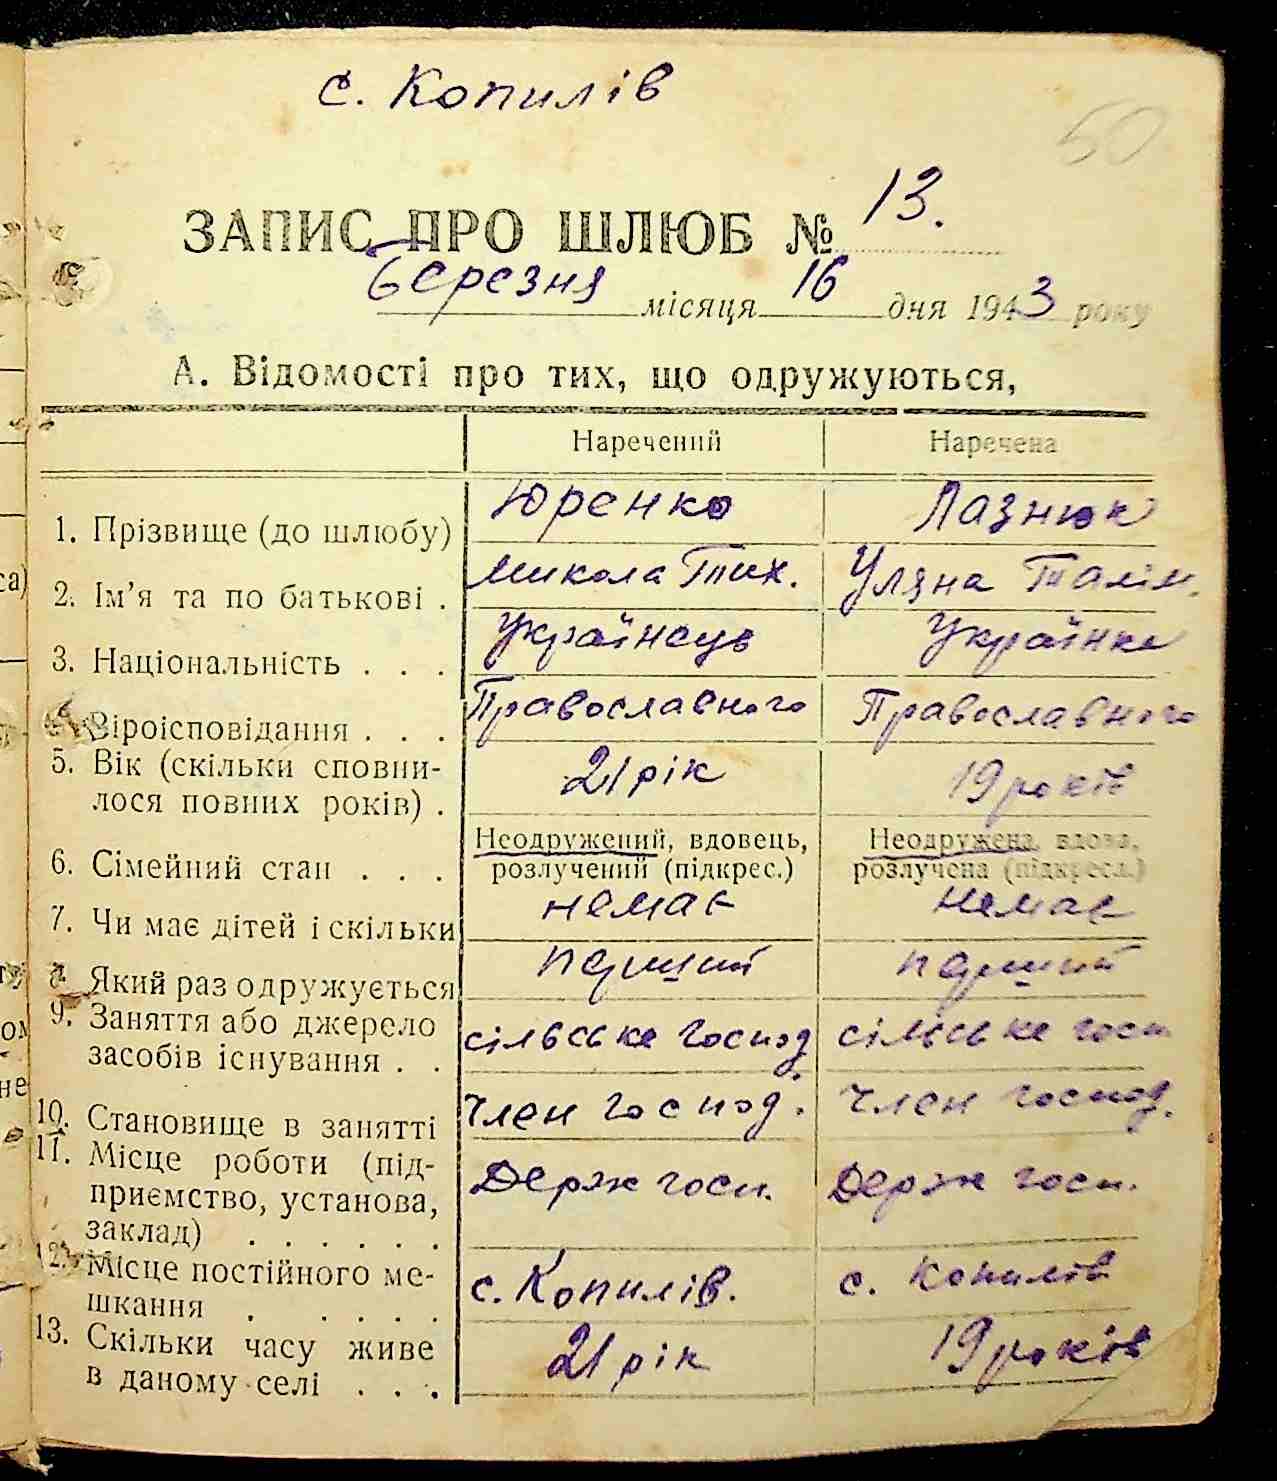 с. Копилів
50
ЗАПИС ПРО ШЛЮБ № 13.
Березня місяця 16 дня 1943 року
А. Відомості про тих, що одружуються,
Наречений Наречена
1. Прізвище (до шлюбу) Юренко Лазнюк
2. Ім’я та по батькові . Микола Тих. Уляна Талім.
3. Національність . . . Українець Українка
4. Віроісповідання . . . Православного Православного
5. Вік (скільки сповни-
лося повних років) . 21 рік 19 років
6. Сімейний стан . . . Неодружений, вдовець, Неодружена, вдова,
розлучений (підкрес.) розлучена (підкресл.)
7. Чи має дітей і скільки немає немає
8. Який раз одружується перший перший
9. Заняття або джерело
засобів існування . . сільське господ. сільське госп.
10. Становище в занятті член господ. член господ.
11. Місце роботи (під-
приємство, установа, Держ госп. Держ госп.
заклад) . . . . . .
12. Місце постійного ме-
шкання . . . . . с. Копилів. с. Копилів
13. Скільки часу живе
в даному селі . . . 21 рік 19 років